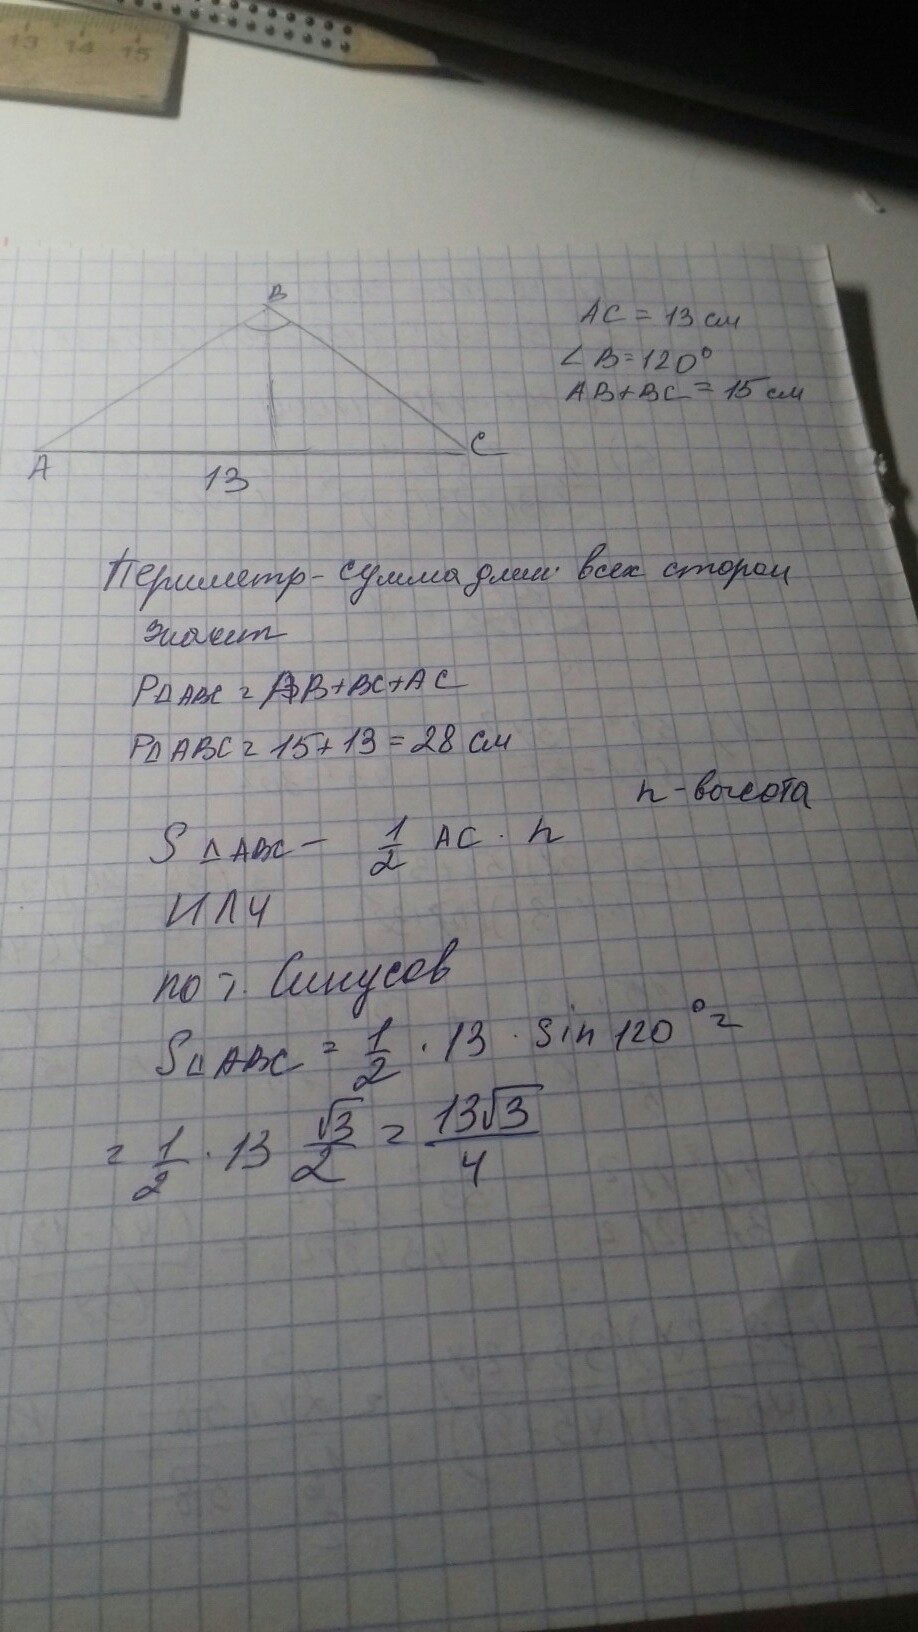 13 14 15
B
AC = 13 см
∠B=120°
AB+BC = 15 см
A
C
13
Периметр - сумма длин всех сторон
значит
P△ABC = AB+BC+AC
P△ABC = 15+13 = 28 см
h - высота
S △ABC - 1/2 AC · h
ИЛИ
по т. Синусов
S△ABC = 1/2 · 13 · sin 120° =
= 1/2 · 13 √3/2 = 13√3/4